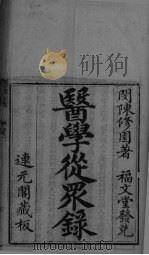 閩陳修園著　福文堂發兌
醫學從眾錄
連元閣藏板